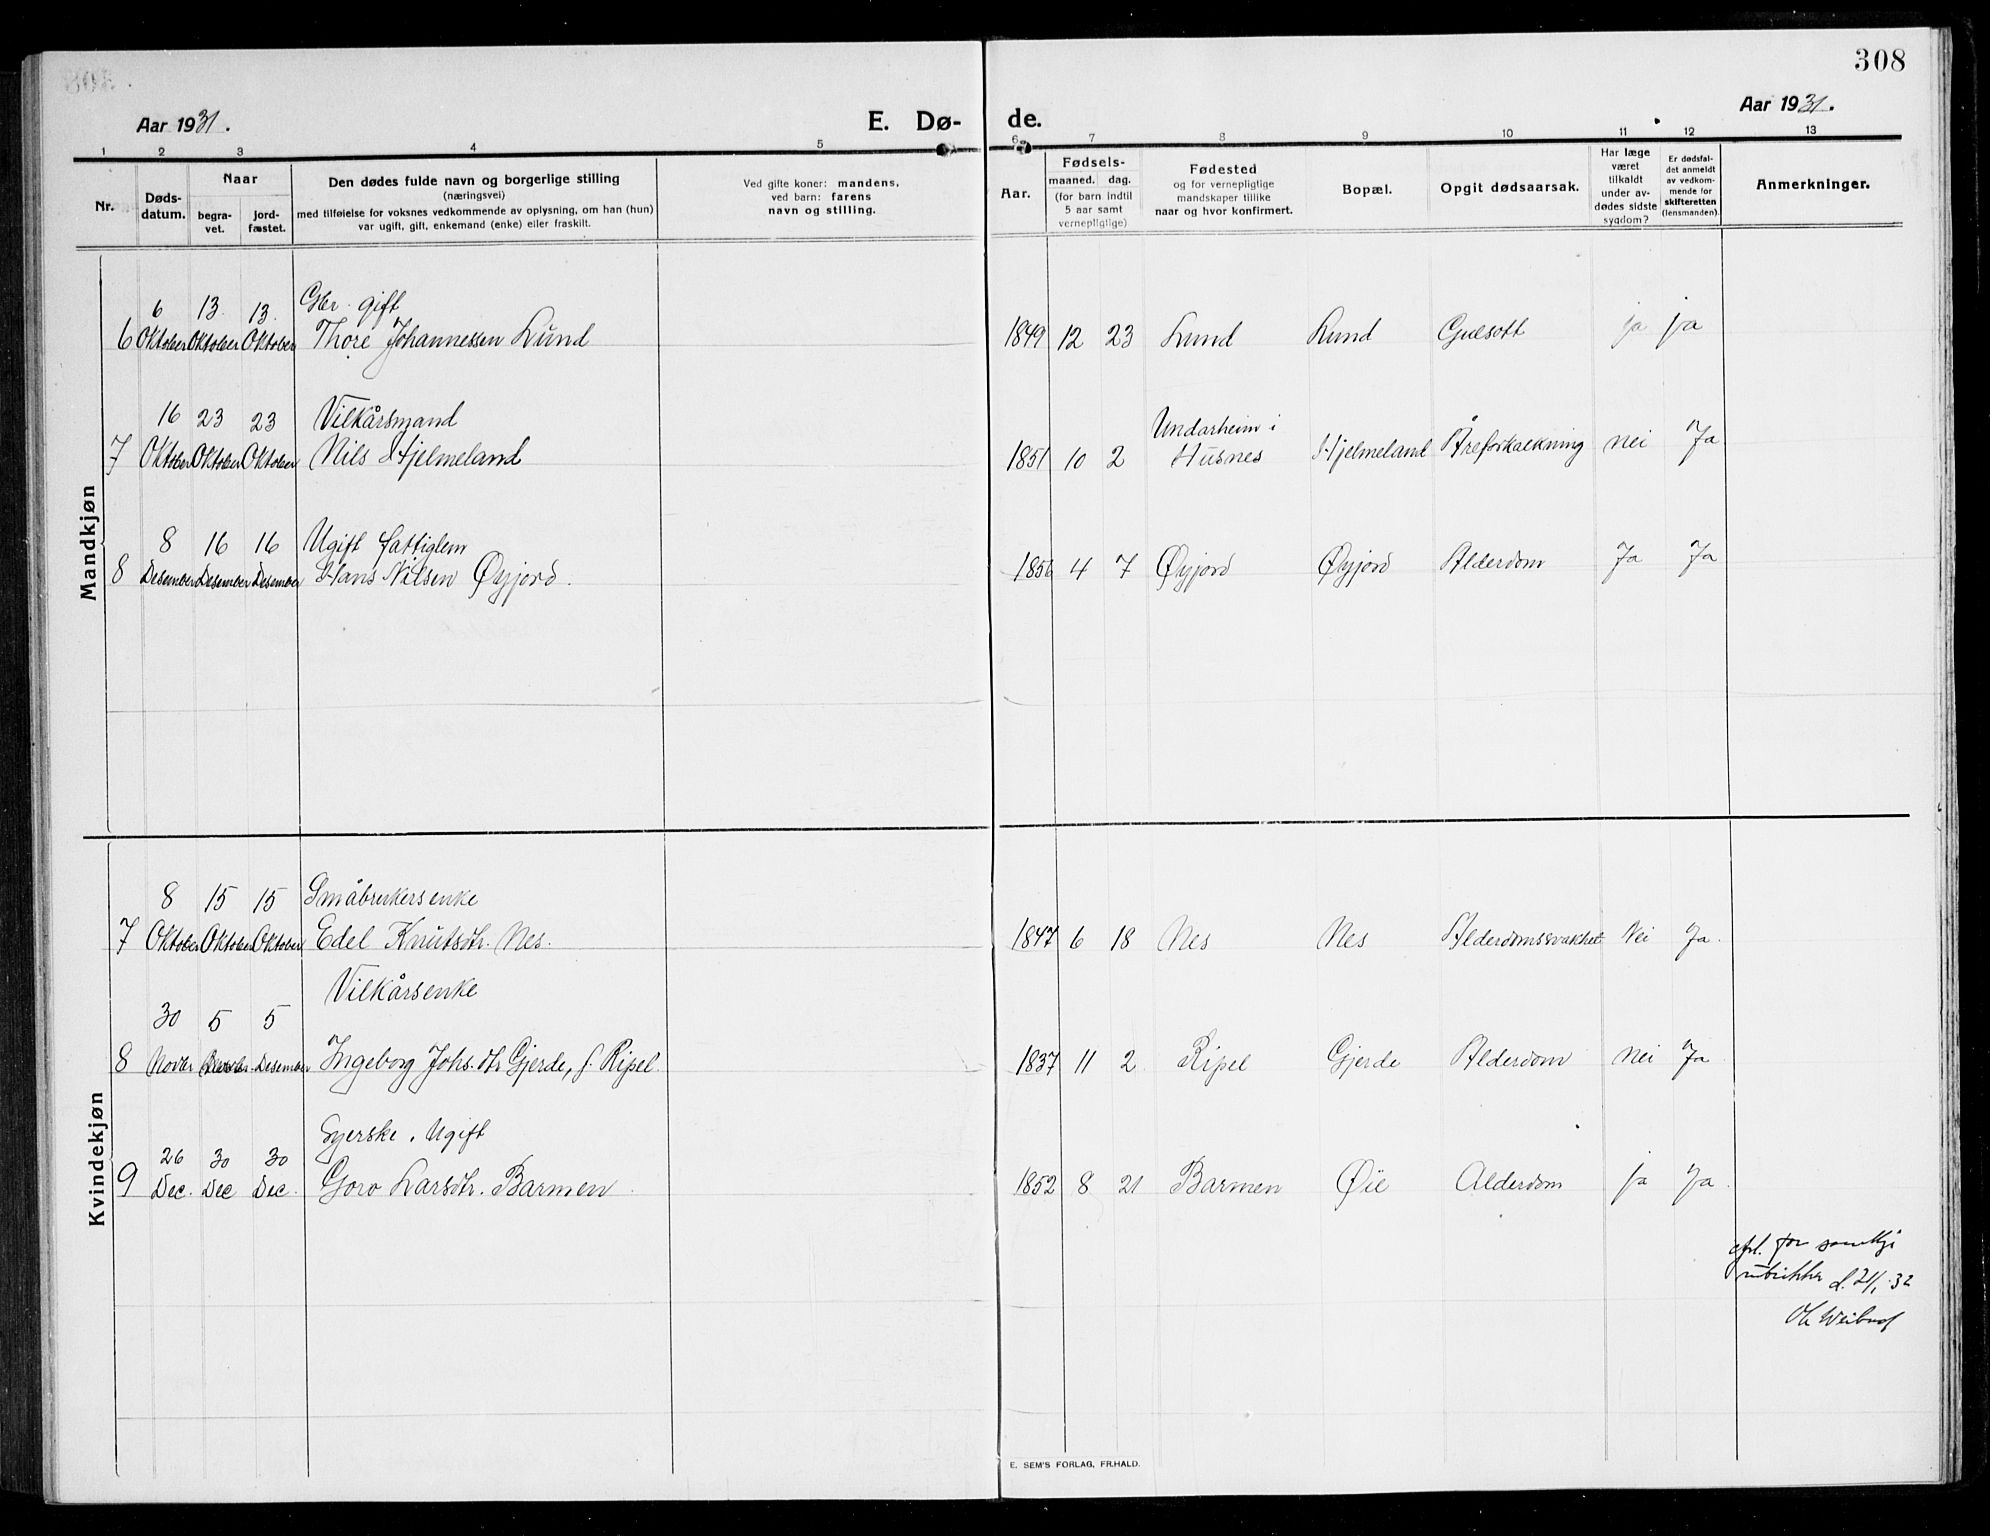 308
Aar 1931.
E. Dø-
de.
Aar 1931.
1 2 3 4 5 6 7 8 9 10 11 12 13
Nr.
Døds-
datum.
Naar
begra-
vet.
jord-
fæstet.
Den dødes fulde navn og borgerlige stilling
(næringsvei)
med tilføielse for voksnes vedkommende av oplysning, om han (hun)
var ugift, gift, enkemand (enke) eller fraskilt.
Ved gifte koner: mandens,
ved barn: farens
navn og stilling.
Aar.
Fødsels-
maaned. dag.
(for barn indtil
5 aar samt
vernepligtige)
Fødested
og for vernepligtige
mandskaper tillike
naar og hvor konfirmert.
Bopæl.
Opgit dødsaarsak.
Har læge
været
tilkaldt
under av-
dødes sidste
sygdom?
Er dødsfal-
det anmeldt
av vedkom-
mende for
skifteretten
(lensmanden).
Anmerkninger.
Mandkjøn
6 13. 13. Gbr. gift
6 Oktober Oktober Oktober Thore Johannessen Lund 1849 12 23 Lund Lund Gulsott ja ja
16 23 23 Vilkårsmand Undarheim i
7 Oktober Oktober Oktober Nils Hjelmeland 1851 10 2 Husnes Hjelmeland Åreforkalkning nei Ja
8 16 16 Ugift fattiglem
8 Desember Desember Desember Hans Nilsen Øyjord. 1856 4 7 Øyjord Øyjord Alderdom Ja Ja
Kvindekjøn
8 15 15 Småbrukersenke
7 Oktober Oktober Oktober Edel Knutsdtr. Nes. 1847 6 18 Nes Nes Alderdomssvakhet Nei Ja.
30 5 5 Vilkårsenke
8 Novbr Desember Ingeborg Johs.dtr Gjerde, f. Ripel. 1837 11 2 Ripel Gjerde Alderdom Nei Ja
26 30 30 Syerske. Ugift
9 Dec. Dec Dec. Goro Larsdtr. Barmen. 1852 8 21 Barmen Øie Alderdom ja Ja.
for
rubrikker d. 21/1 32
E. SEM'S FORLAG, FR.HALD.